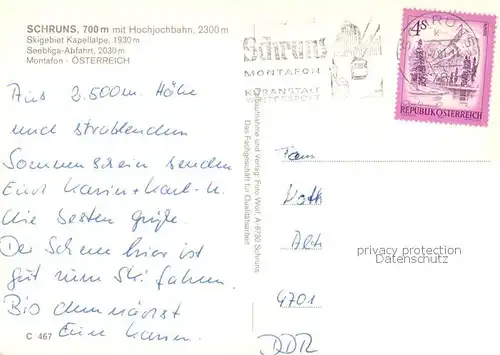 SCHRUNS, 700 m mit Hochjochbahn, 2300 m
Skigebiet Kapellalpe, 1930 m
Seebliga-Abfahrt, 2030 m
Montafon - ÖSTERREICH
Aus 2.500m. Höhe
und strahlendem
Sonnenschein senden
Euch Karin + Karl-H.
die besten Grüße.
Der Schnee hier ist
gut zum Ski fahren.
Bis demnächst
Eure Karin.
C 467
Schruns
MONTAFON
KURANSTALT
WINTERSPORT
SCHRUNS
4S
REPUBLIK ÖSTERREICH
Originalaufnahme und Verlag: Foto Wolf, A-6780 Schruns
Das Fachgeschäft für Qualitätsarbeit
Fam
Alte
4701
DDR
privacy protection
Datenschutz